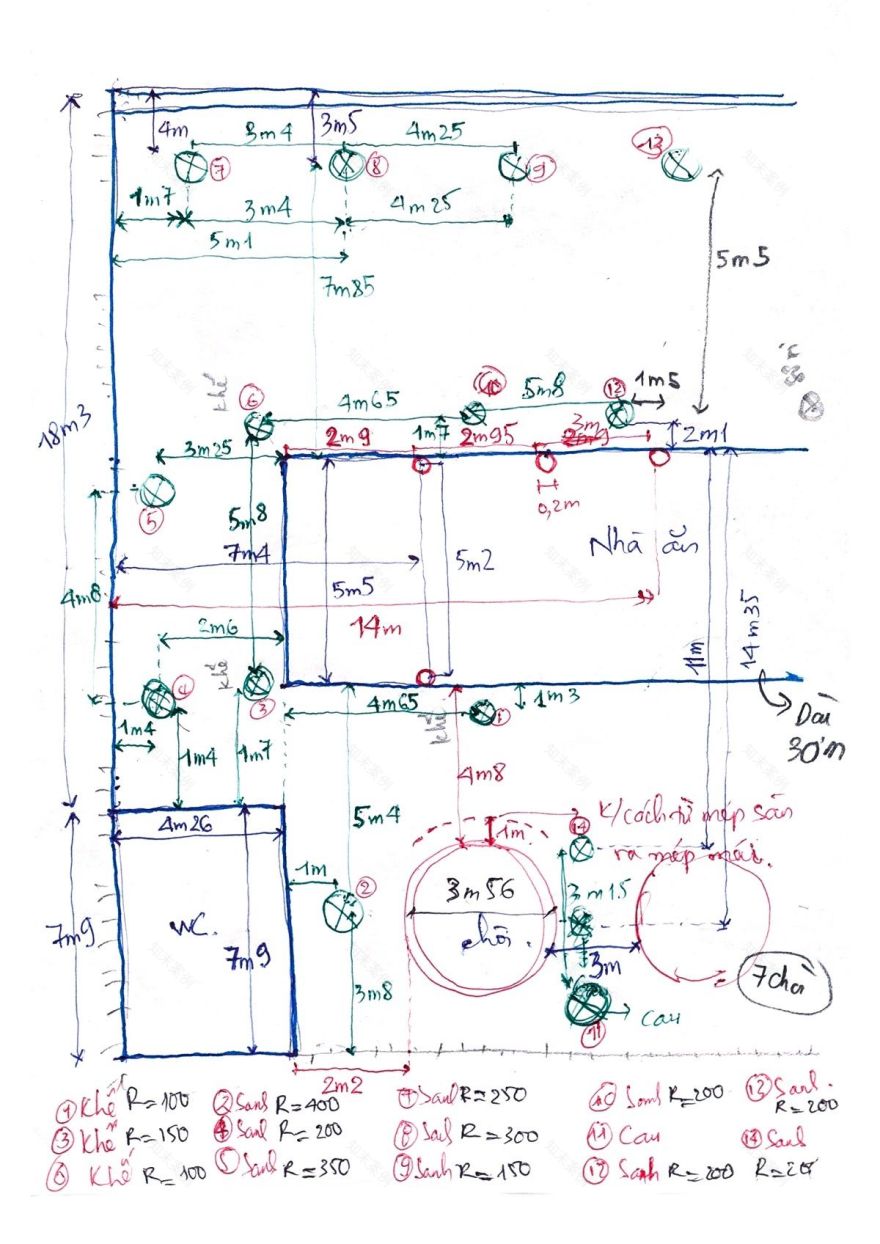 4m
3m4
3m5
4m25
13
7
8
9
1m7
3m4
4m25
5m1
5m5
7m85
18m3
khế
6
4m65
10
5m8
12
1m5
3m25
2m9
1m7
2m95
3m
2m9
2m1
5
5m8
0,2m
Nhà ăn
7m4
5m2
4m8
5m5
14m
11m
14m35
2m6
khế
4
3
1m3
4m65
1
khế
Dài
30m
1m4
1m4
1m7
4m8
5m4
1m
14
K/cách từ mép sân
ra mép mái.
4m26
1m
2
3m56
3m15
7m9
WC.
7m9
chòi.
3m
7 chòi
3m8
11
Cau
2m2
1 Khế R=100
2 Sanh R=400
7 Sanh R=250
10 Sanh R=200
13 Sanh.
R=200
3 Khế R=150
4 Sanh R=200
8 Sanh R=300
11 Cau
14 Sanh
6 Khế R=100
5 Sanh R=350
9 Sanh R=150
12 Sanh R=200